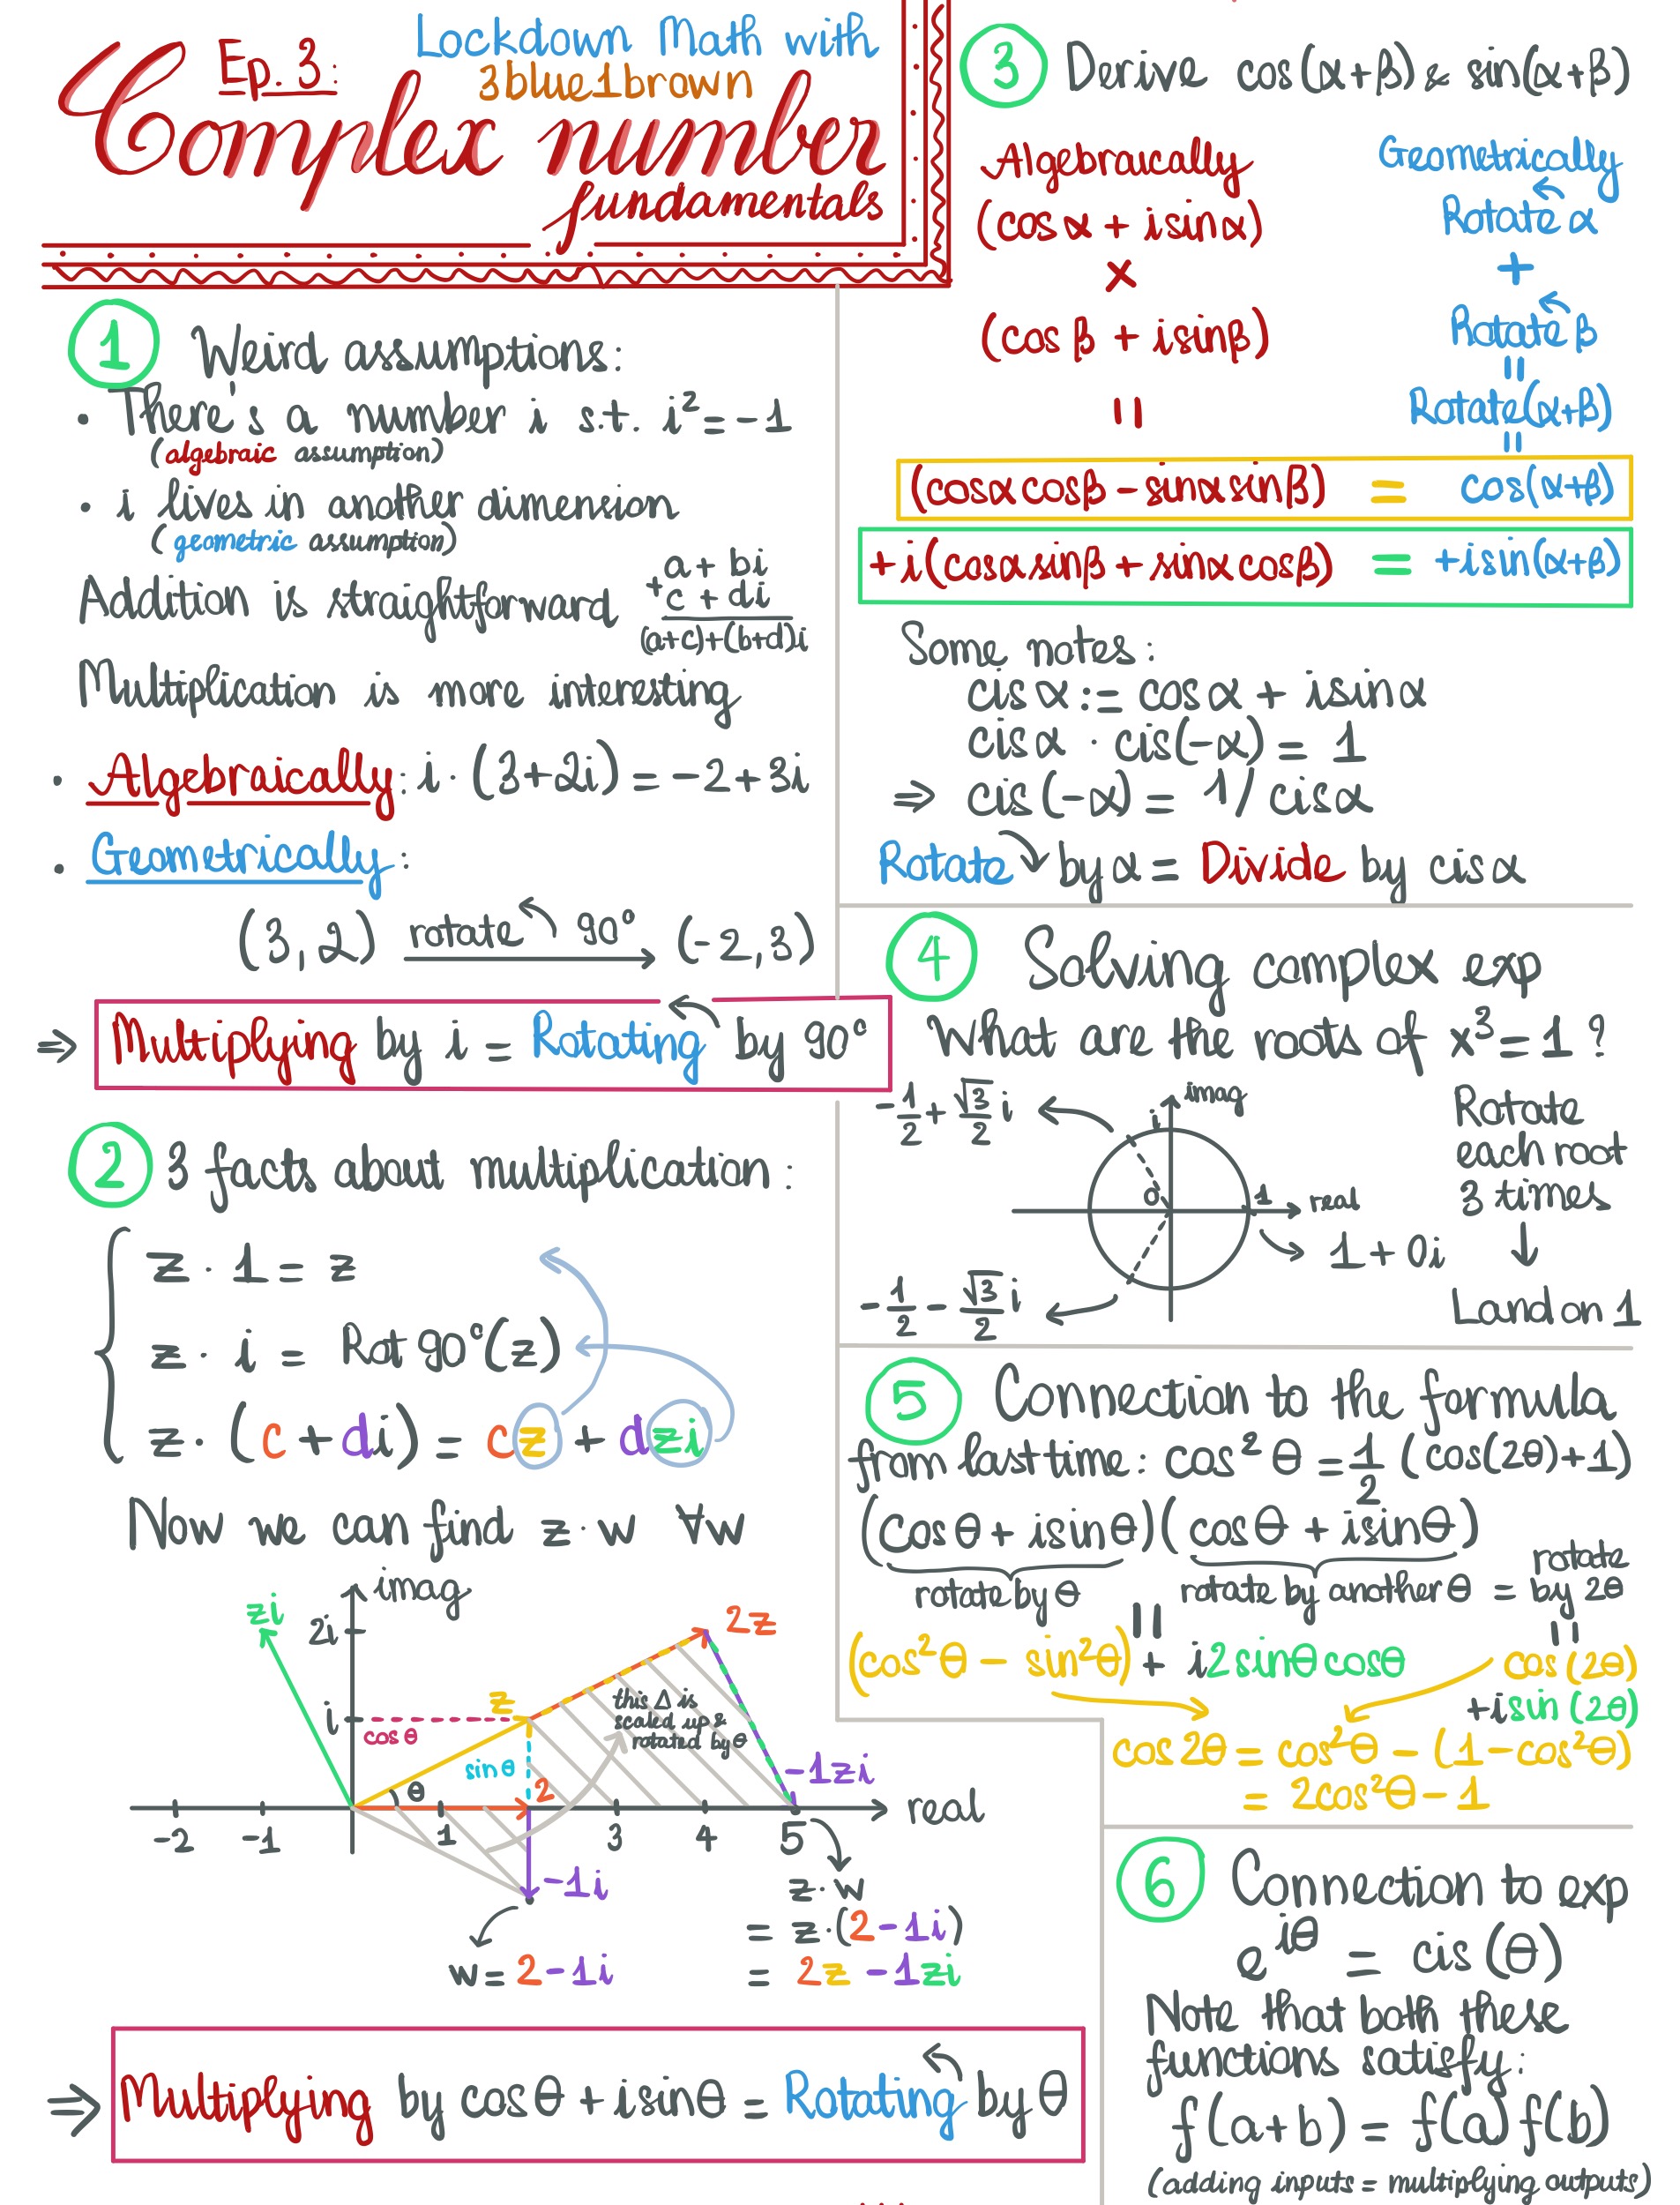 Ep. 3:
Lockdown Math with
3blue1brown
Complex number
fundamentals
1 Weird assumptions:
• There's a number i s.t. i² = -1
(algebraic assumption)
• i lives in another dimension
(geometric assumption)
Addition is straightforward
a + bi
+ c + di
(a+c)+(b+d)i
Multiplication is more interesting
• Algebraically: i · (3+2i) = -2+3i
• Geometrically:
(3,2) rotate 90° (-2,3)
⇒ Multiplying by i = Rotating by 90°
2 3 facts about multiplication:
z · 1 = z
z · i = Rot 90°(z)
z · (c + di) = cz + dzi
Now we can find z · w ∀w
imag
zi
2i
2z
z
this Δ is
scaled up &
rotated by θ
i
cos θ
sin θ
-1zi
θ
2
real
-2 -1 1 3 4 5
-1i
z · w
= z · (2-1i)
w = 2-1i
= 2z -1zi
⇒ Multiplying by cos θ + i sin θ = Rotating by θ
3 Derive cos(α+β) & sin(α+β)
Algebraically
(cos α + i sin α)
×
(cos β + i sin β)
=
Geometrically
Rotate α
+
Rotate β
=
Rotate(α+β)
=
(cosα cosβ - sinα sinβ) = cos(α+β)
+i(cosα sinβ + sinα cosβ) = +i sin(α+β)
Some notes:
cis α := cos α + i sin α
cis α · cis(-α) = 1
⇒ cis(-α) = 1/cis α
Rotate by α = Divide by cis α
4 Solving complex exp
What are the roots of x³ = 1?
-1/2 + √3/2 i
imag
i
0
1
real
1 + 0i
-1/2 - √3/2 i
Rotate
each root
3 times
↓
Land on 1
5 Connection to the formula
from last time: cos² θ = 1/2 (cos(2θ)+1)
(cos θ + i sin θ)(cos θ + i sin θ)
rotate by θ rotate by another θ = rotate by 2θ
=
=
(cos²θ - sin²θ) + i2sinθ cosθ
cos(2θ)
+i sin(2θ)
cos 2θ = cos²θ - (1-cos²θ)
= 2cos²θ - 1
6 Connection to exp
e^iθ = cis(θ)
Note that both these
functions satisfy:
f(a+b) = f(a) f(b)
(adding inputs = multiplying outputs)